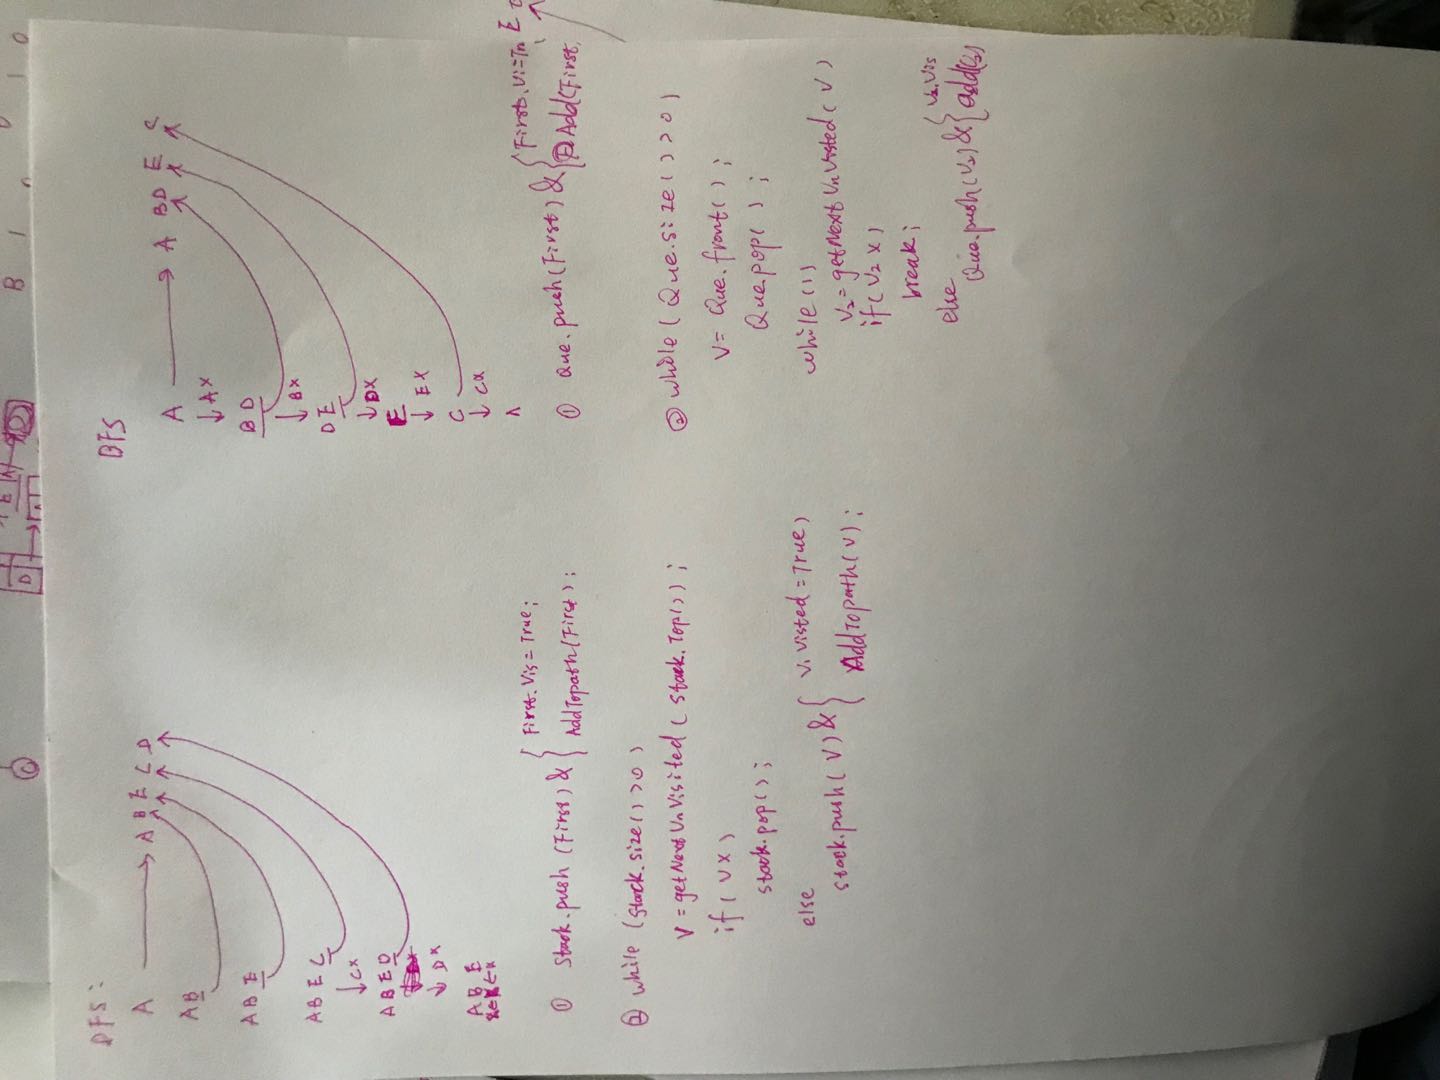 D
E A
B 1 0 1 0
DFS:
A → A B E C D
AB
ABE
ABEC
↓CX
ABED
↓ DX
ABE
X←X←X
① Stack.push(First) & { First.Vis=True;
AddTopath(First);
② while (Stack.size()>0)
V=getNextUnVisited(Stack.Top());
if(VX)
stack.pop();
else
stack.push(V) & { V.Visted=True)
AddTopath(V);
BFS
A → A BD E C
↓AX
BD
↓BX
DE
↓DX
E
↓EX
C
↓CX
① Que.push(First) & { First.Vi=Tr
Add(First,
E
② while(Que.size()>0)
V=Que.front();
Que.pop();
while(1)
V2=getNextUnVisted(V)
if(V2X)
break;
else
Que.push(V2) & { V2.Vis
add(V2)